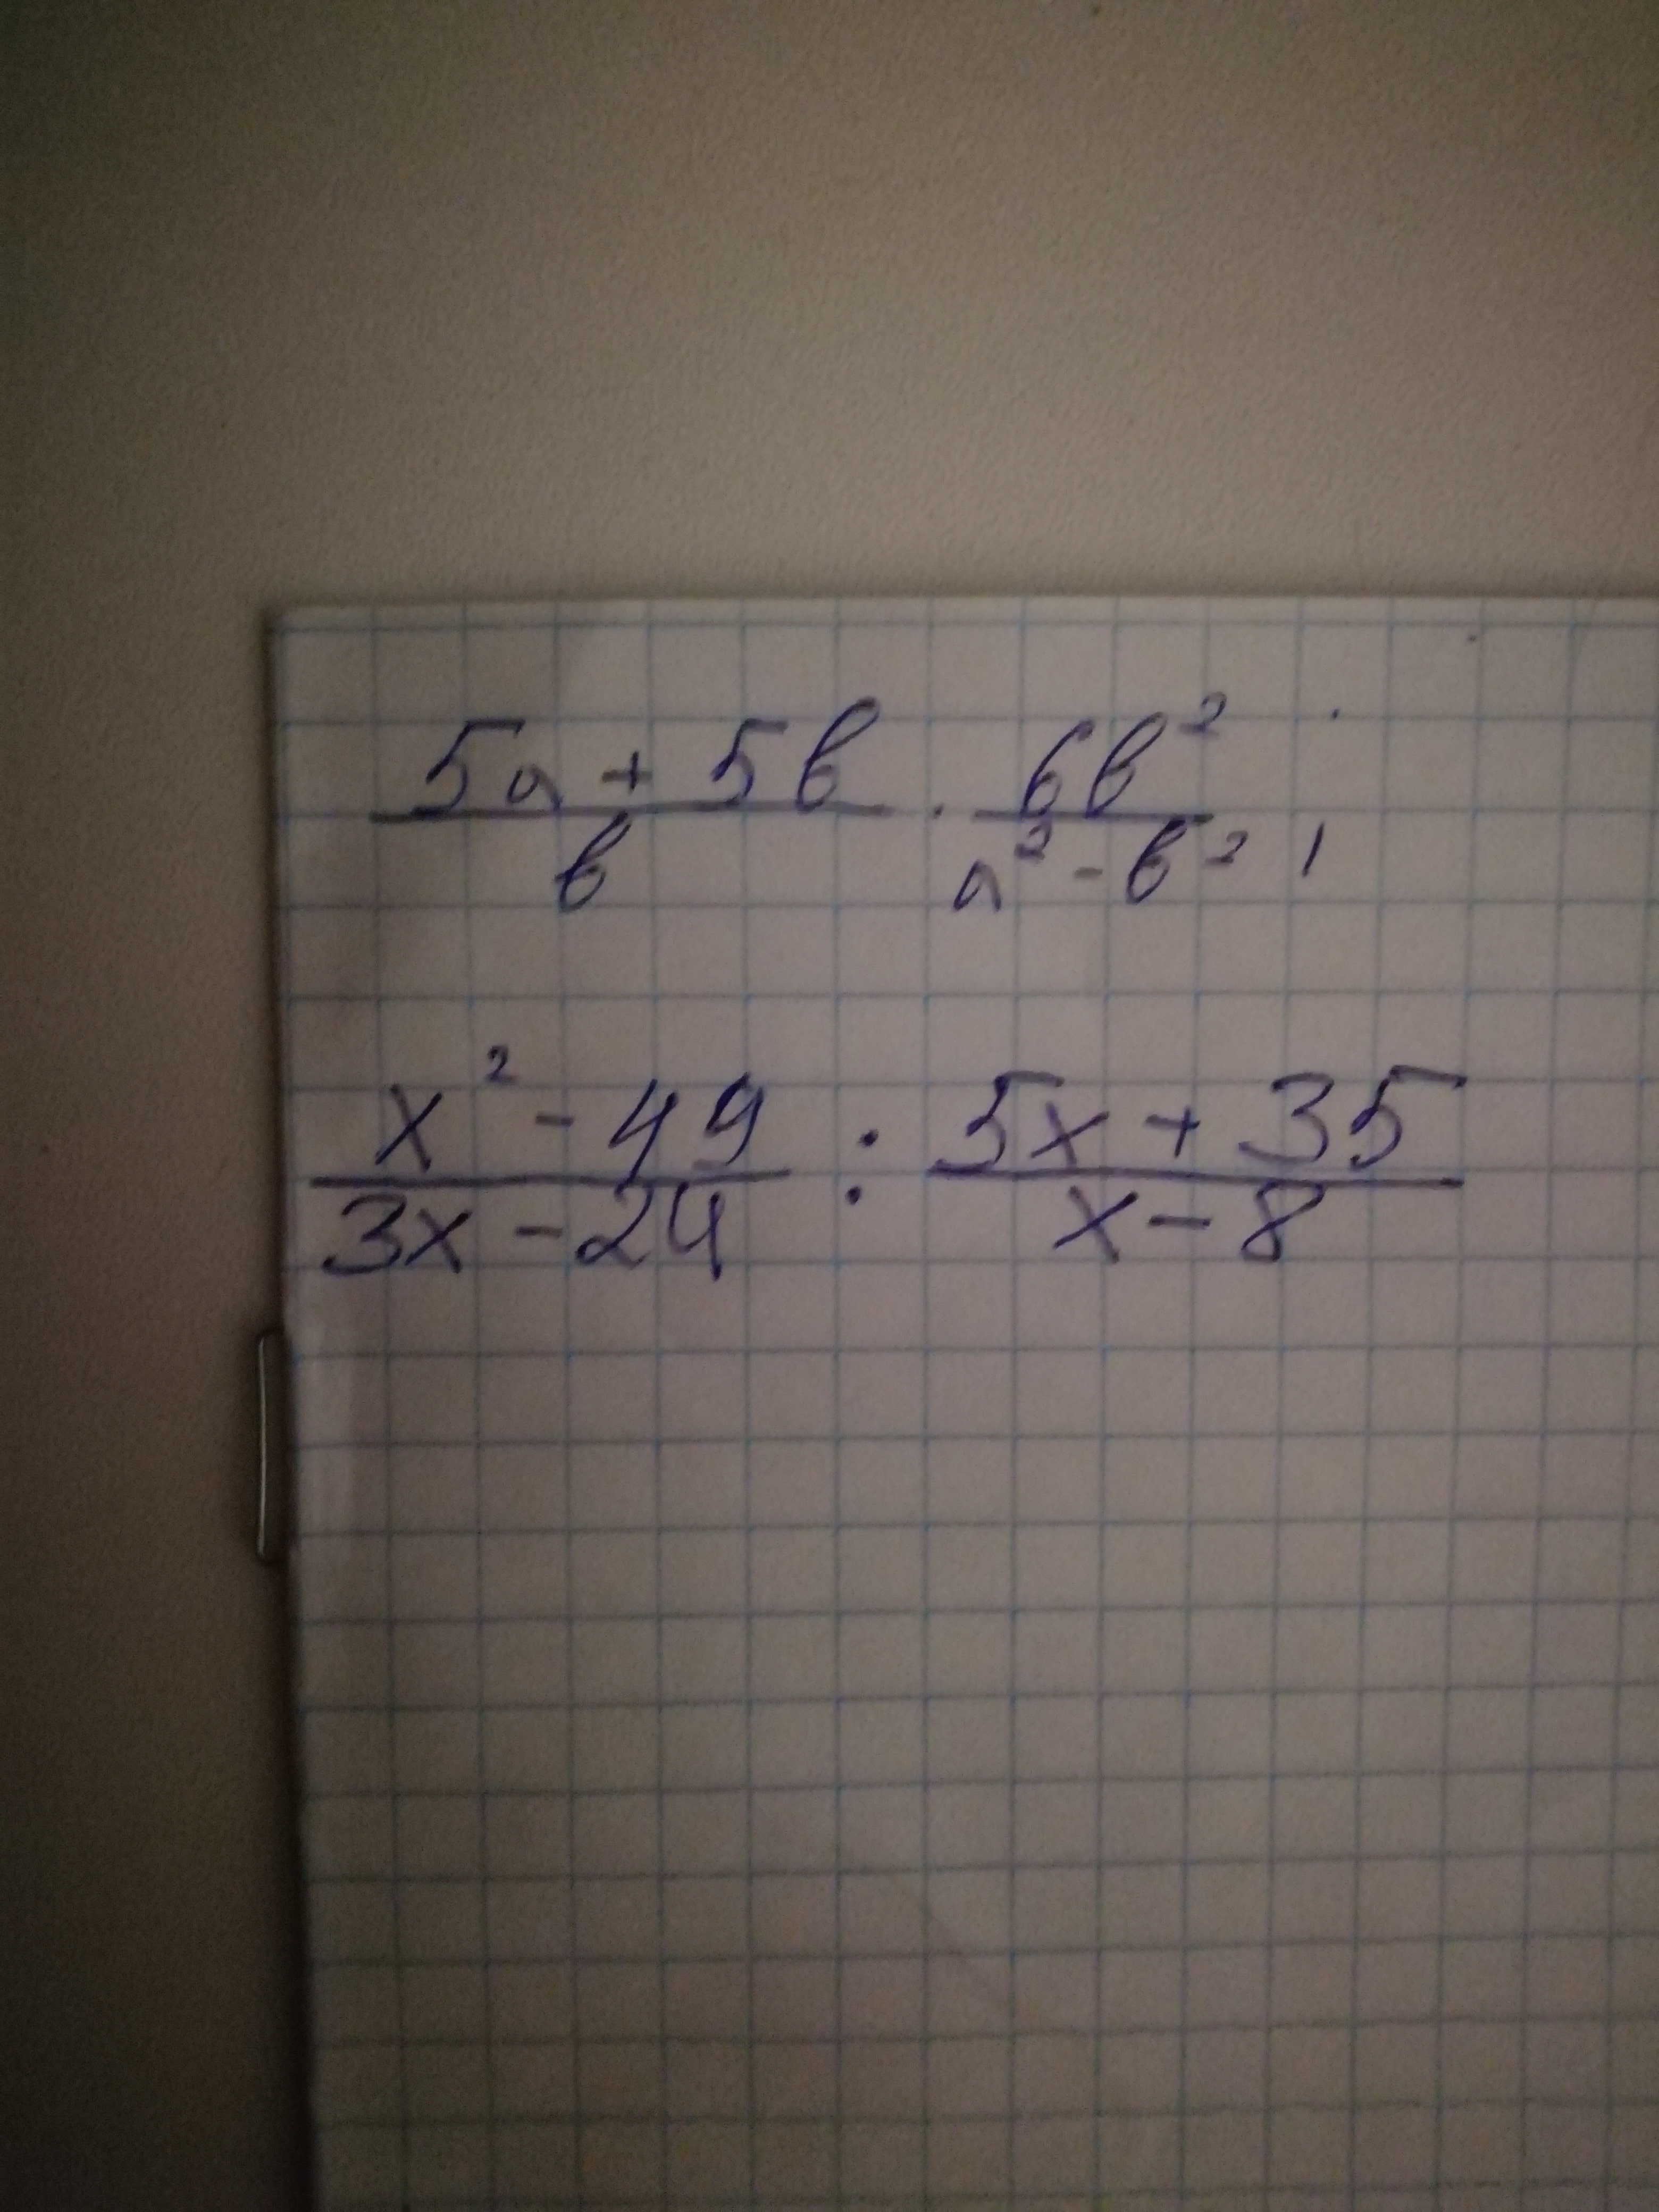 (5a + 5b)/b · 6b²/(a² - b²),
(x² - 49)/(3x - 24) : (5x + 35)/(x - 8)